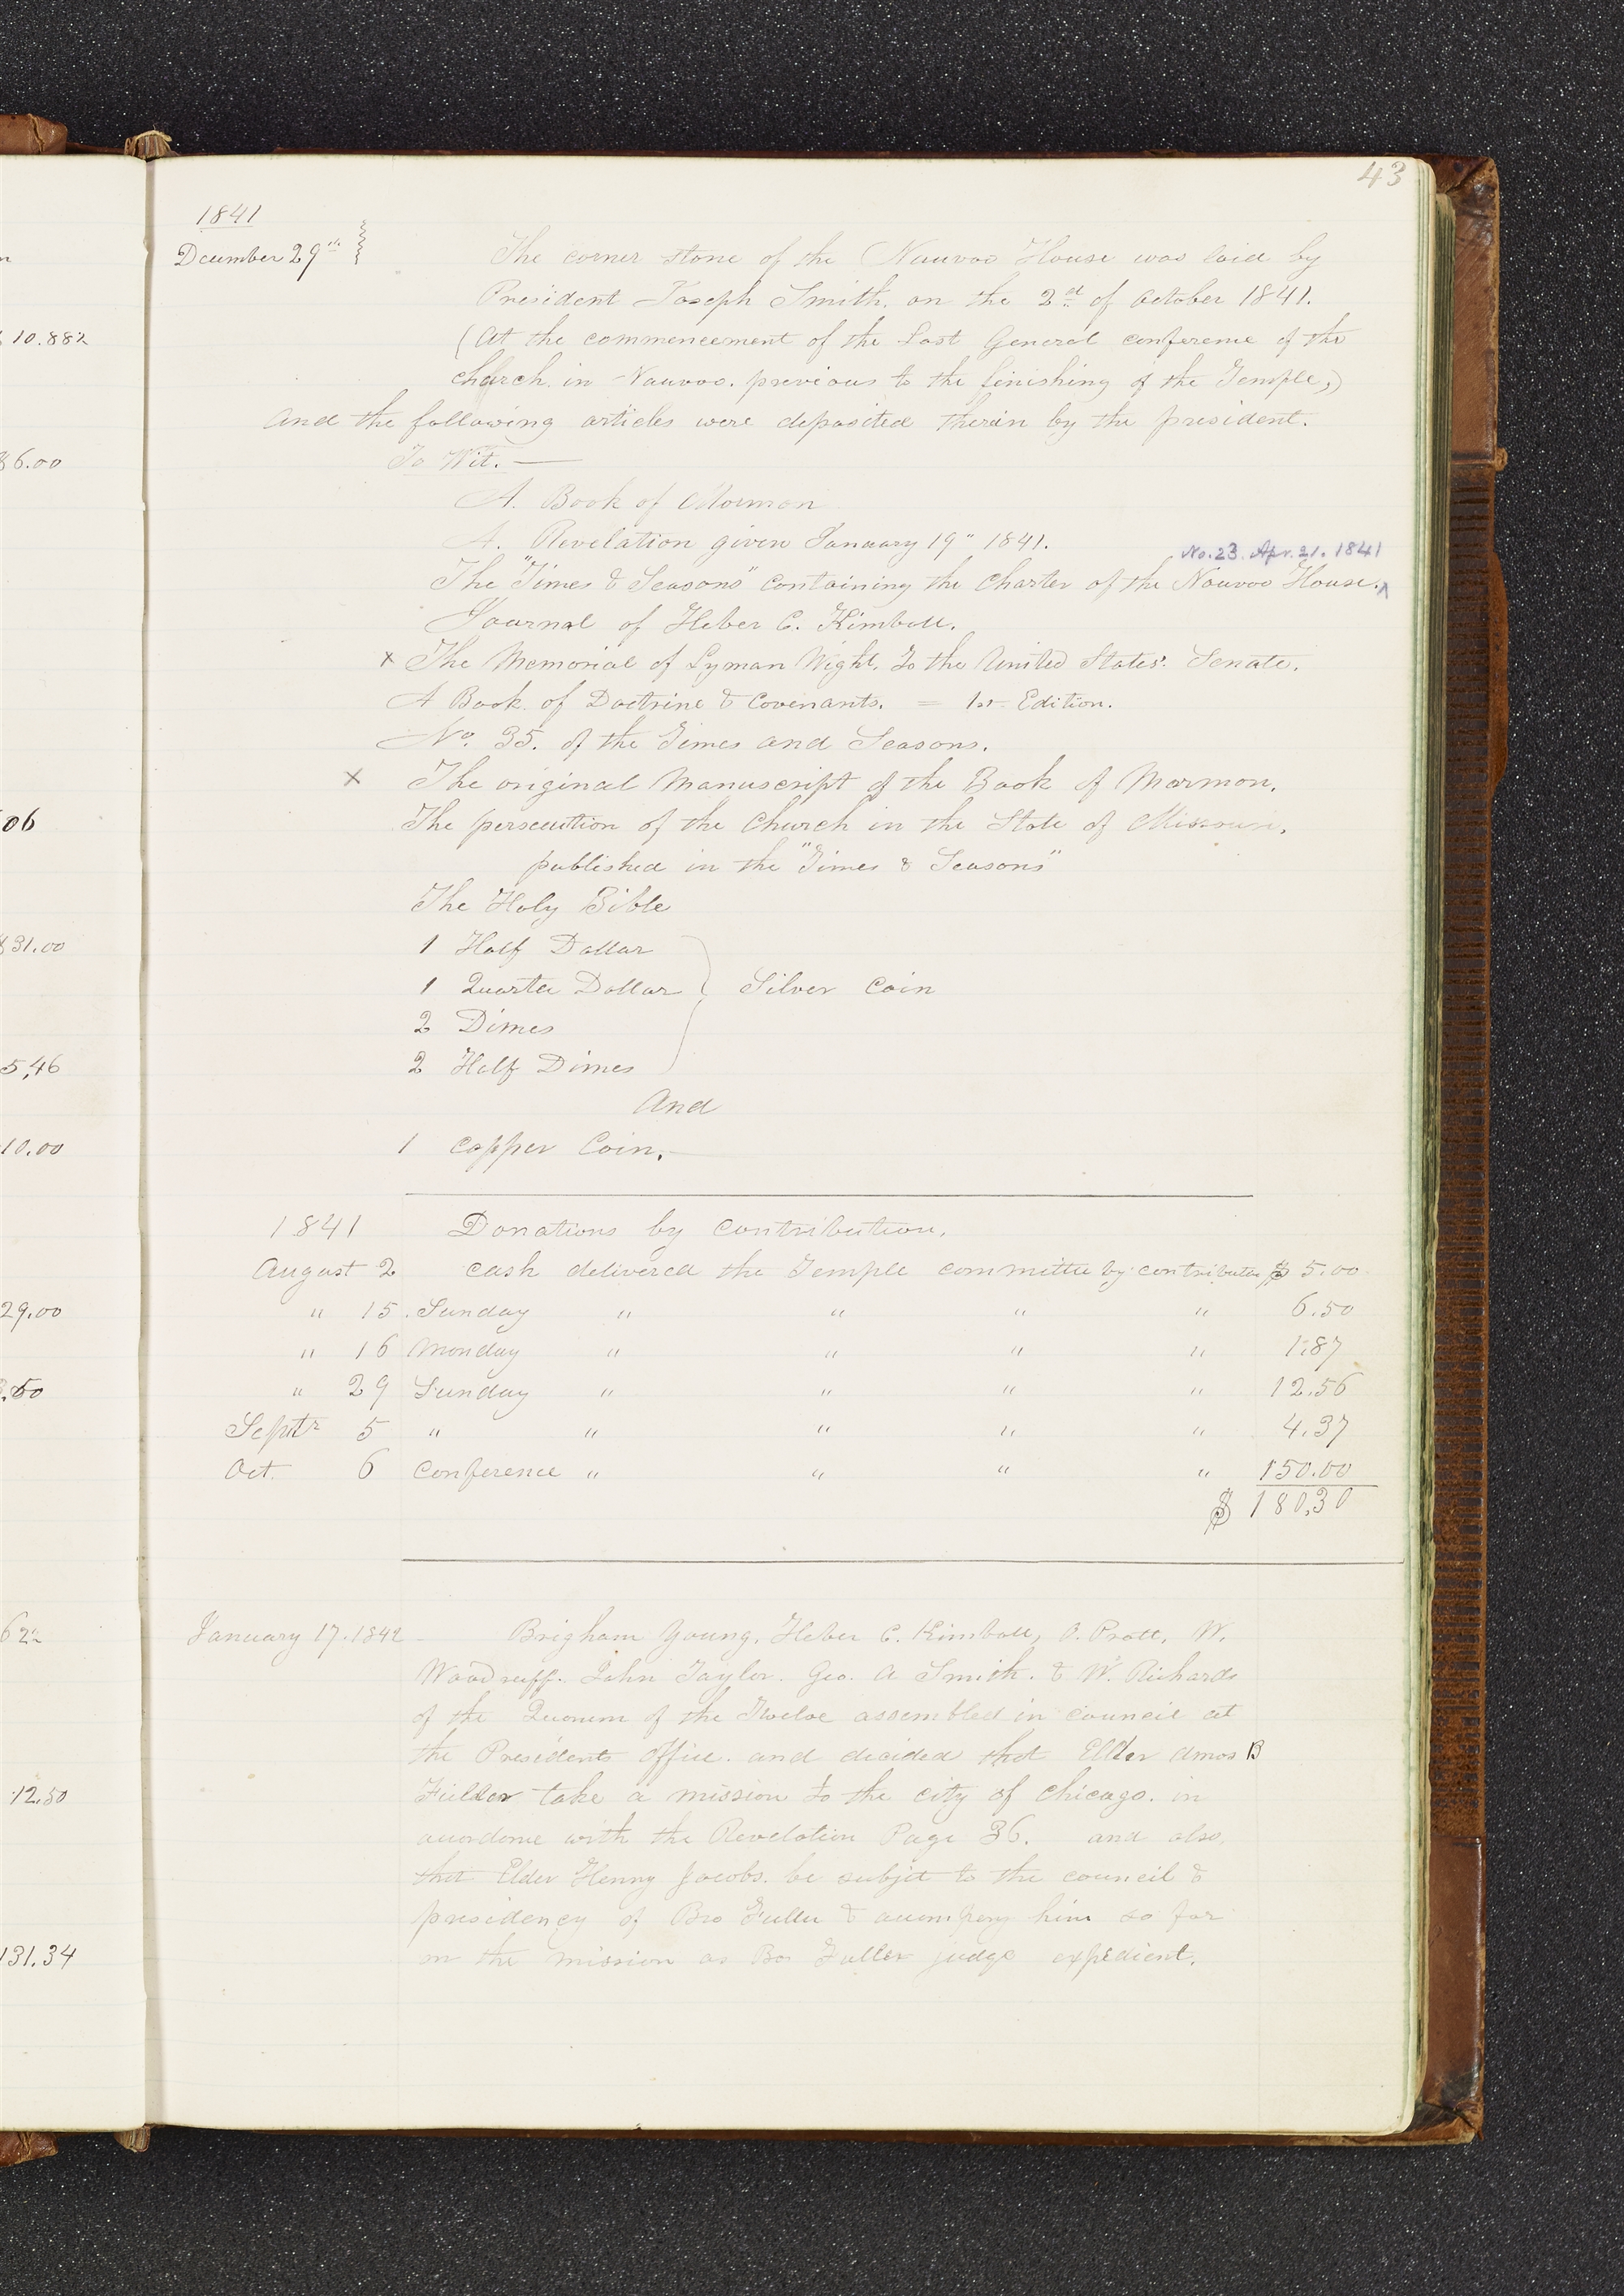 43
1841
Dcember 29th
The corner stone of the Nauvoo House was laid by
President Joseph Smith. on the 2d of October 1841.
(At the commencement of the Last General conference of the
church. in Nauvoo. previous to the finishing of the Temple,)
And the following articles were deposited therein by the president.
To Wit. —
A. Book of Mormon
A. Revelation given January 19" 1841.
No. 23. Apr. 21. 1841
The "Times & Seasons" containing the Charter of the Nauvoo House. ^
Journal of Heber C. Kimball.
x The Memorial of Lyman Wight. To the United States. Senate.
A Book of Doctrine & Covenants. = 1st Edition.
No. 35. of the Times and Seasons.
x The original Manuscript of the Book of Mormon.
The persecution of the Church in the State of Missouri,
published in the "Times & Seasons"
The Holy Bible
1 Half Dollar
1 Quarter Dollar } Silver Coin
2 Dimes
2 Half Dimes
And
1 Copper Coin. —
1841 Donations by Contribution.
August 2 Cash delivered the Temple committee by contribution $ 5.00
" 15. Sunday " " " " 6.50
" 16 Monday " " " " 1.87
" 29 Sunday " " " " 12.56
Septr 5 " " " " " 4.37
Oct. 6 Conference " " " " 150.00
$ 180.30
January 17. 1842 Brigham Young, Heber C. Kimball, O. Pratt, W.
Woodruff. John Taylor. Geo. A Smith. & W. Richards
of the Quorum of the Twelve assembled in council at
the Presidents office. and decided that Elder Amos B
Fuller take a mission to the city of Chicago. in
accordance with the Revelation Page 36. and also,
that Elder Henry Jacobs. be subject to the council &
presidency of Bro Fuller & accompany him so far
on the mission as Bro Fuller judge expedient.
10.882
86.00
06
831.00
5,46
10.00
29.00
.50
622
12.50
131.34